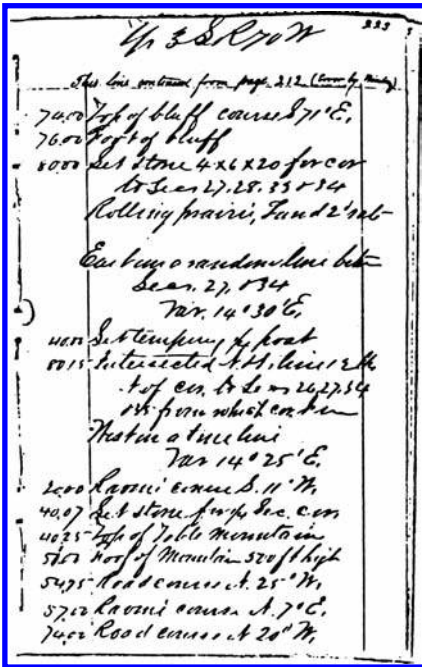 223
Tp 3 S R 70 W
This line continued from page 212 (Error by
74.00 Top of bluff course S 71° E.
76.00 Foot of bluff
80.00 Set stone 4x6x20 for cor
to Secs 27.28.33 & 34
Rolling prairie, Land 2d rate
East on a random line betw
Secs. 27 & 34
Var. 14° 30' E.
40.00 Set temporary ¼ post
80.15 Intersected N.S. line 12 lks
N of cor. to Secs 26.27.34
& 35 from which cor I run
West on a true line
Var 14° 25' E.
20.00 Ravine course S. 11° W.
40.07 Set stone for ¼ Sec. cor
40.25 Top of Table Mountain
50.00 Foot of Mountain 520 ft high
54.75 Road course N. 25° W.
57.00 Ravine course N. 7° E.
74.00 Road course N 20° W.